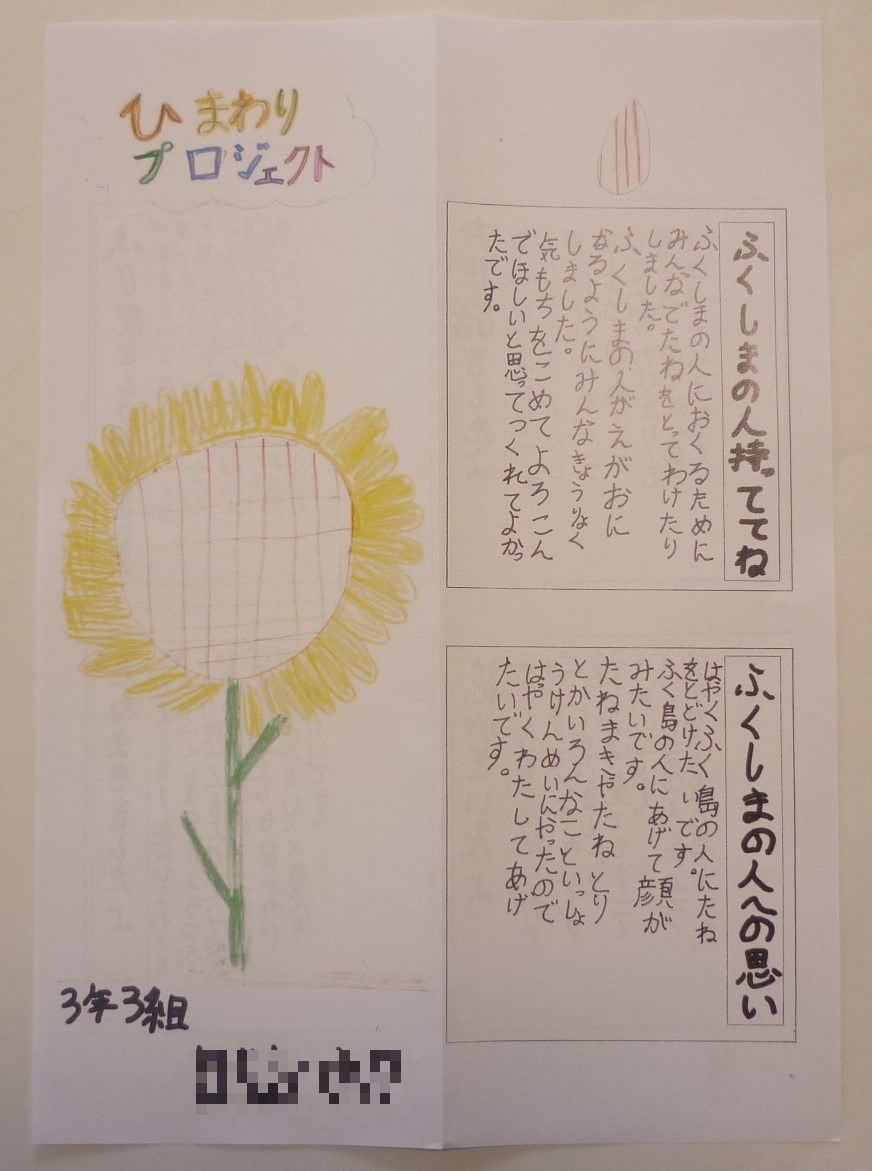 ひまわり
プロジェクト
3年3組
ふくしまの人持っててね
ふくしまの人におくるために
みんなでたねをとってわけたり
しました。
ふくしまの人がえがおに
なるようにみんなきょうりょく
しました。
気もちをこめてよろこん
でほしいと思ってつくれてよかっ
たです。
ふくしまの人への思い
はやくふく島の人にたね
をとどけたいです。
ふく島の人にあげて顔が
みたいです。
たねまきやたねとり
とかいろんなこといっしょ
うけんめいにやったので
はやくわたしてあげ
たいです。